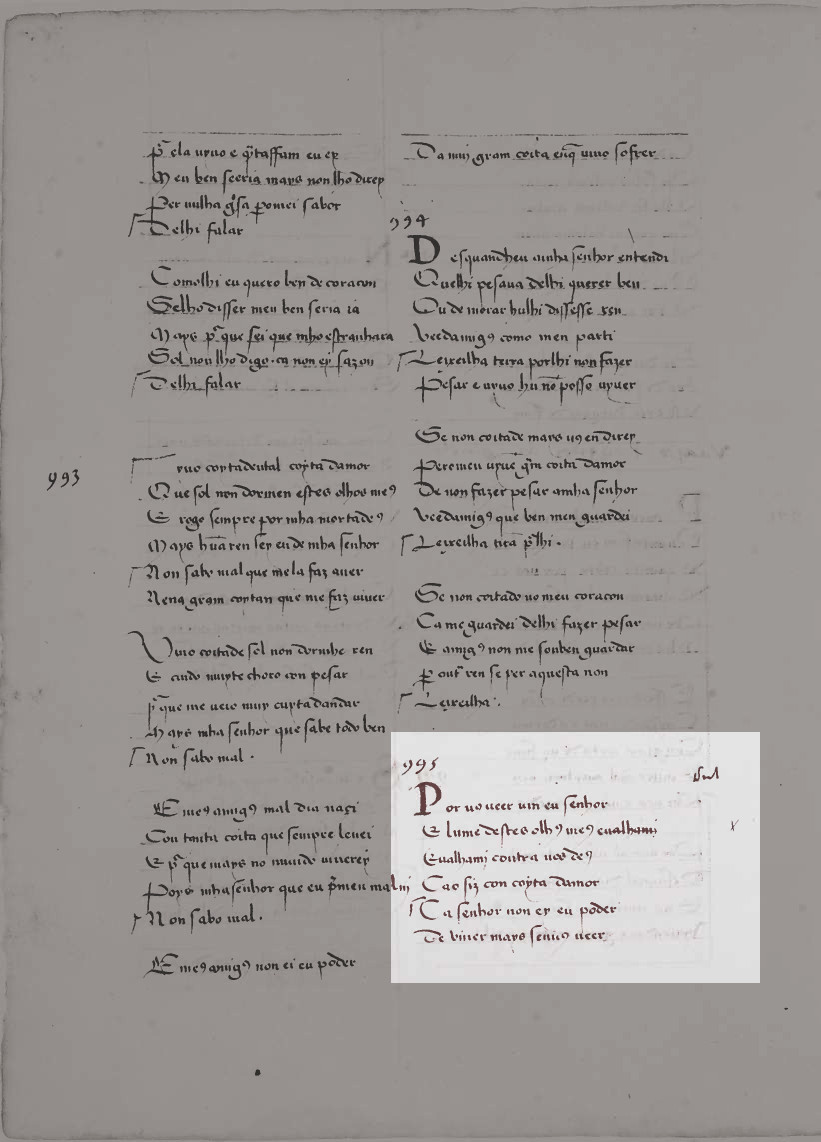 p̃ ela uyuo e q̃ taffam eu ex
Meu ben seeria mays non lho direy
Per nulha g̃sa pomei sabor
Delhi falar
Comolhi eu quero ben de coracon
Selho disser meu ben seria ia
Mays p̃ que sei que mho estranhara
Sol non lho digo. ca non ey sazon
Delhi falar
993
yuo coytadental coyta damor
Que sol non dormen estes olhos meꝯ
E rogo sempre por mha morta deꝯ
Mays hũa ren sey eu de mha senhor
Non sabo mal que mela faz auer
Nena gram coytan que me faz uiuer
Viuo coitade sol non dormho ren
E cudo muyte choro con pesar
p̃ que me ueio muy cuyta dandar
Mays mha senhor que sabe todo ben
Non sabo mal.
E meꝯ amigꝯ mal dia naçi
Con tanta coita que sempre leuei
E p̃ que mays no mundo uiuerey
Poys mha senhor que eu p̃ men mal ui
Non sabo mal.
E meꝯ amigꝯ non ei eu poder
Da mui gram coita eñq̃ uiuo sofrer
994
Desquandheu amha senhor entendi
Quelhi pesaua delhi querer ben
Ou de morar hulhi dissesse ren
Veedamigꝯ como men parti
Leixeilha terra porlhi non fazer
Pesar e uyuo hu nõ posso uyuer
Se non coitade mays uꝯ en direy
Peromeu uyue g̃m coita damor
De non fazer pesar amha senhor
Veedamigꝯ que ben men guardei
Leixeilha tirã p̃ lhi.
Se non coitado no meu coracon
Ca me guardei delhi fazer pesar
E amigꝯ non me souben guardar
p outᷓ ren se per aquesta non
Leixeilha.
995
Por uo ueer uin eu senhor
E lume destes olhꝯ meꝯ eualhami
Eualhami contra uos deꝯ
Cao fiz con coyta damor
Ca senhor non ey eu poder
De viuer mays seuꝯ ueer